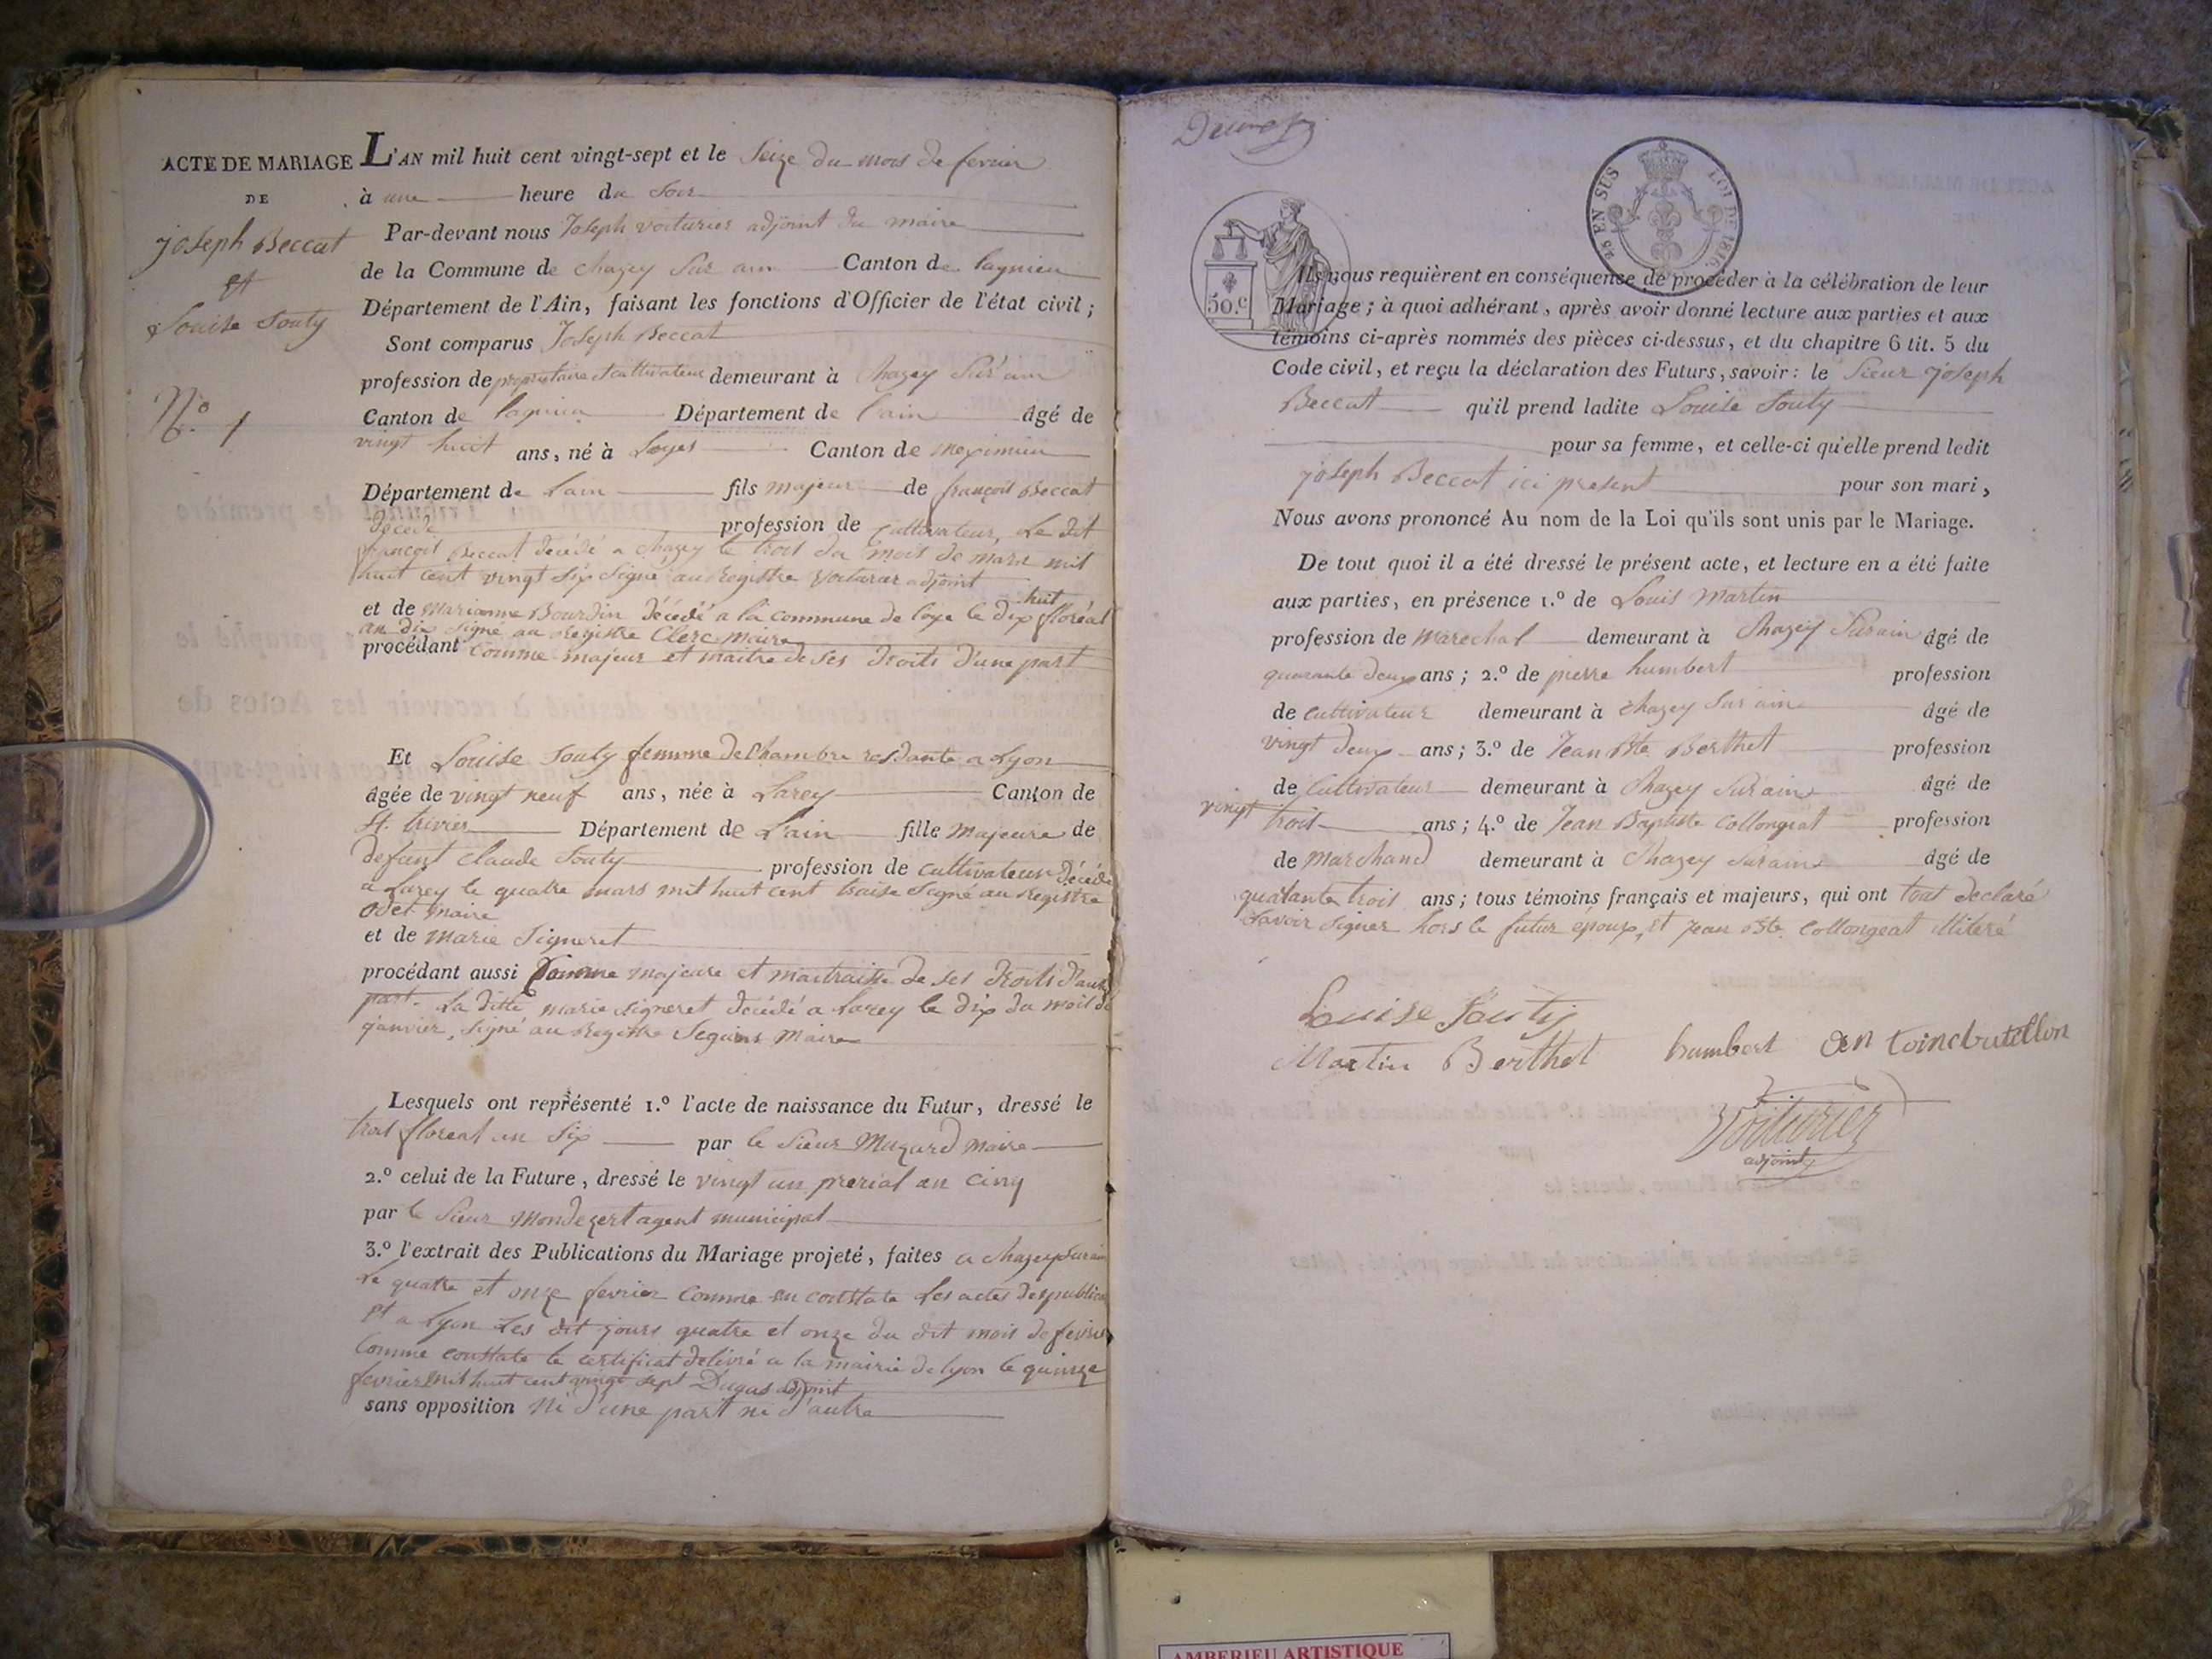 ACTE DE MARIAGE
DE
Joseph Beccat
et
Louise Souty
N.º 1
L'AN mil huit cent vingt-sept et le Seize du mois de fevrier
à une heure du Soir
Par-devant nous Joseph Voiturier adjoint du maire
de la Commune de Chazey Sur ain Canton de lagnieu
Département de l'Ain, faisant les fonctions d'Officier de l'état civil ;
Sont comparus Joseph Beccat
profession de propriétaire et cultivateur demeurant à Chazey Sur ain
Canton de lagnieu Département de l'ain âgé de
vingt huit ans, né à Loyes Canton de meximieu
Département de Lain fils majeur de françois Beccat
décédé profession de Cultivateur, Le dit
françois Beccat décédé a chazey le trois du mois de mars mil
huit cent vingt six signé au Registre Voiturier adjoint
et de Marianne Bourdin décédé a la commune de loye le dix huit floréal
an dix signé au Registre Clerc Maire
procédant comme majeur et maitre de ses droits d'une part
Et Louise Souty femme de Chambre residante a Lyon
âgée de vingt neuf ans, née à Larey Canton de
St. trivier Département de L'ain fille majeure de
defunt Claude Souty profession de cultivateur décédé
a Larey le quatre mars mil huit cent traise Signé au Registre
Odet maire
et de Marie Signeret
procédant aussi Comme majeure et maitraisse de ses droits d'autre
part. La ditte marie signeret décédé a Larey le dix du mois de
janvier, signé au Registre Seguins Maire
Lesquels ont représenté 1.º l'acte de naissance du Futur, dressé le
trois floreal an Six par le Sieur Mazard maire
2.º celui de la Future, dressé le vingt un prerial an Cinq
par le Sieur Mondezert agent municipal
3.º l'extrait des Publications du Mariage projeté, faites a chazey Surain
Le quatre et onze fevrier Comme en constate Les actes des public
Et a Lyon Les dit jours quatre et onze du dit mois de fevrier
Comme constate le certificat délivré a la mairie de lyon le quinze
fevrier mil huit cent vingt sept Dugas adjoint
sans opposition ni d'une part ni d'autre
50.C
25 EN SUS LOI DE 1816.
Ils nous requièrent en conséquence de procéder à la célébration de leur
Mariage ; à quoi adhérant, après avoir donné lecture aux parties et aux
témoins ci-après nommés des pièces ci-dessus, et du chapitre 6 tit. 5 du
Code civil, et reçu la déclaration des Futurs, savoir : le Sieur Joseph
Beccat qu'il prend ladite Louise Souty
pour sa femme, et celle-ci qu'elle prend ledit
Joseph Beccat ici present pour son mari,
Nous avons prononcé Au nom de la Loi qu'ils sont unis par le Mariage.
De tout quoi il a été dressé le présent acte, et lecture en a été faite
aux parties, en présence 1.º de Louis Martin
profession de Marechal demeurant à Chazey Surain âgé de
quarante deux ans ; 2.º de pierre humbert profession
de Cultivateur demeurant à Chazey Sur ain âgé de
vingt deux ans ; 3.º de Jean Bte. Berthet profession
de Cultivateur demeurant à Chazey Surain âgé de
vingt trois ans ; 4.º de Jean Baptiste Collongeat profession
de Marchand demeurant à Chazey Surain âgé de
quarante trois ans ; tous témoins français et majeurs, qui ont tout declaré
Savoir signer hors le futur époux, et Jean Bte. Collongeat illiteré
Louise Souty
Martin Berthet humbert
Voiturier
adjoint
AMBERIEU ARTISTIQUE